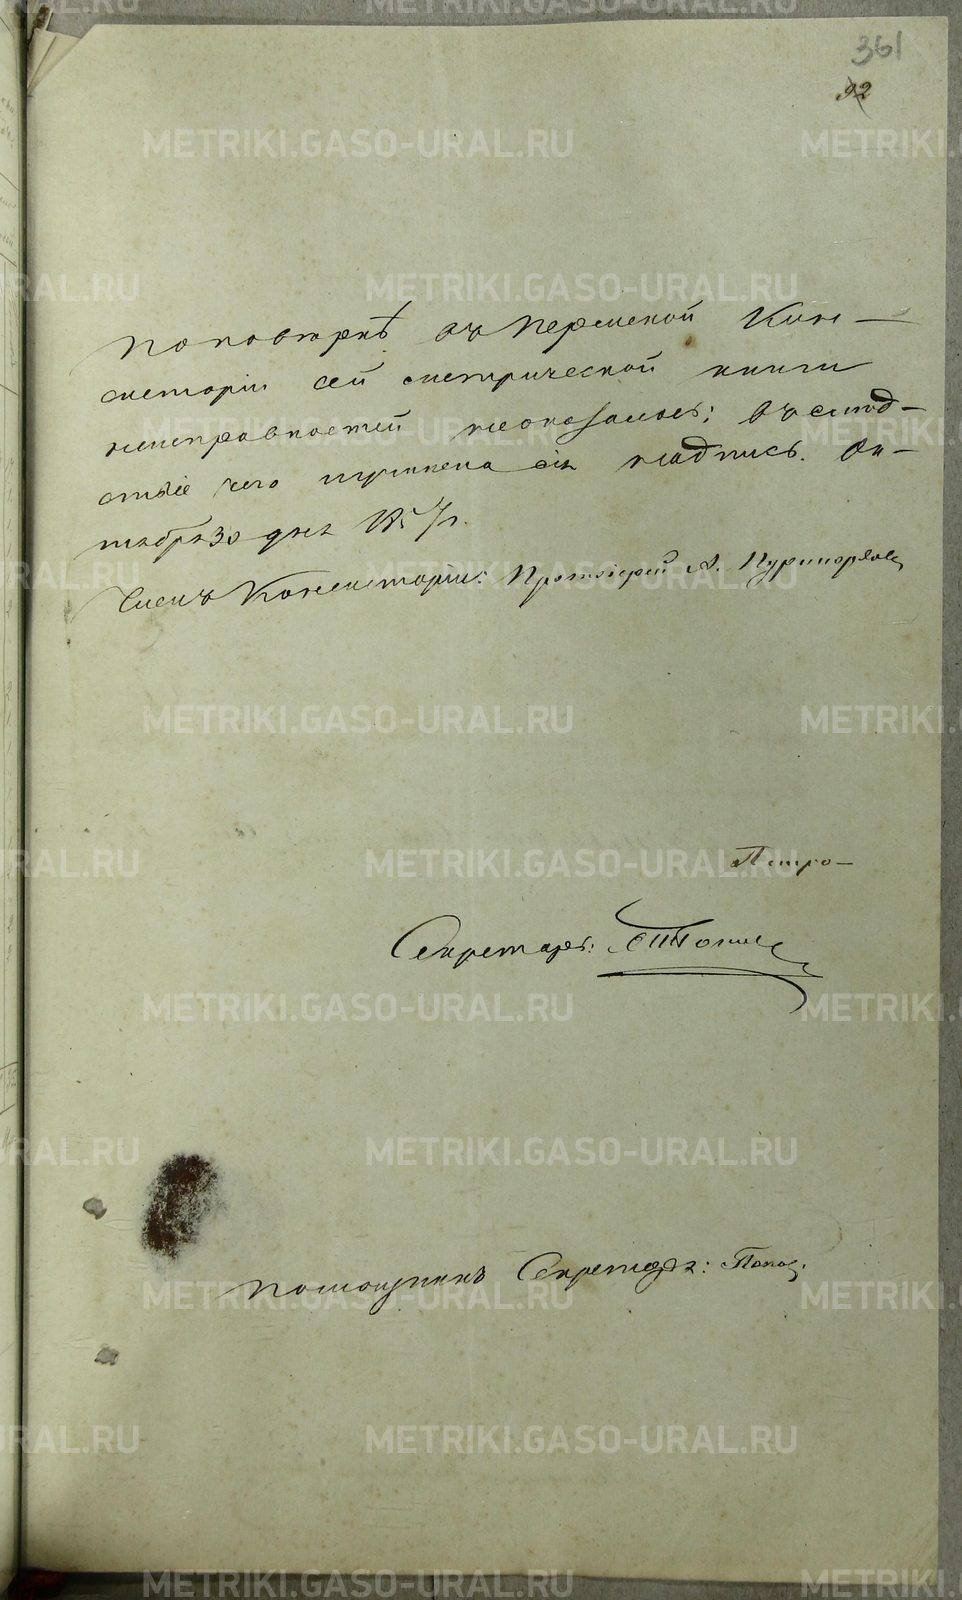 361
92
По поверкѣ въ Пермской Кон-
систоріи сей метрической книги
неисправностей неоказалось; въ слѣд-
ствіе чего учинена сія надпись. Ок-
тября 30 дня 1857 г.
Членъ Консисторіи: Протоіерей А.
Секретарь:
Помощникъ Секретаря: Попов
METRIKI.GASO-URAL.RU